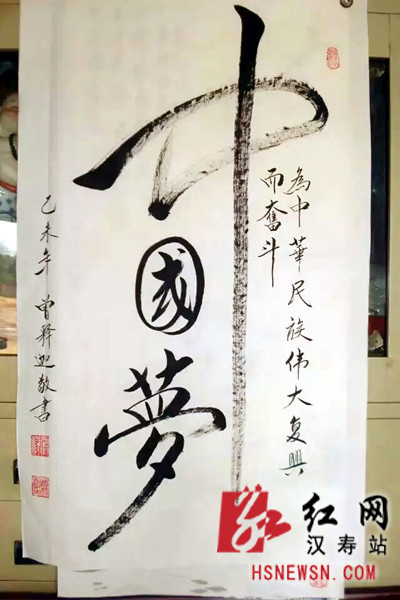 中國夢
為中華民族伟大复興
而奮斗
乙未年 曾释迦敬書
红网
汉寿站
HSNEWSN.COM